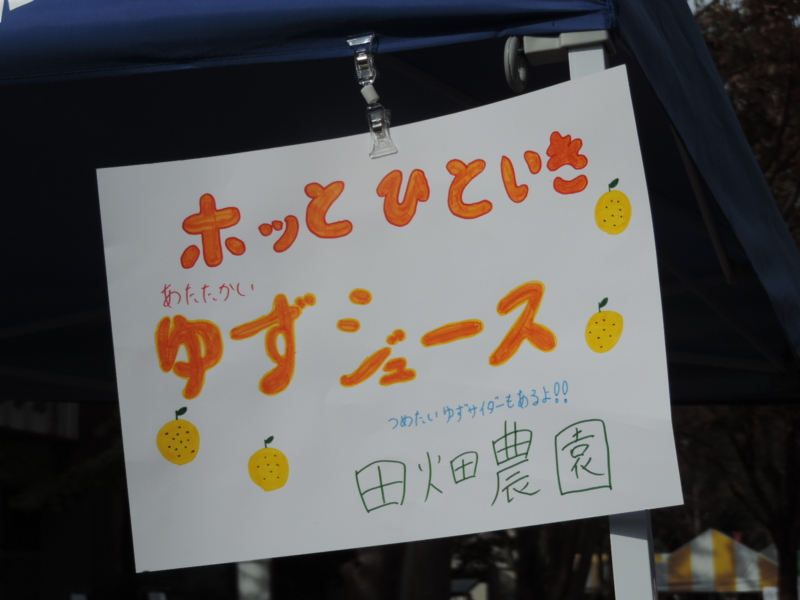 ホッとひといき
あたたかい
ゆずジュース
つめたいゆずサイダーもあるよ!!
田畑農園